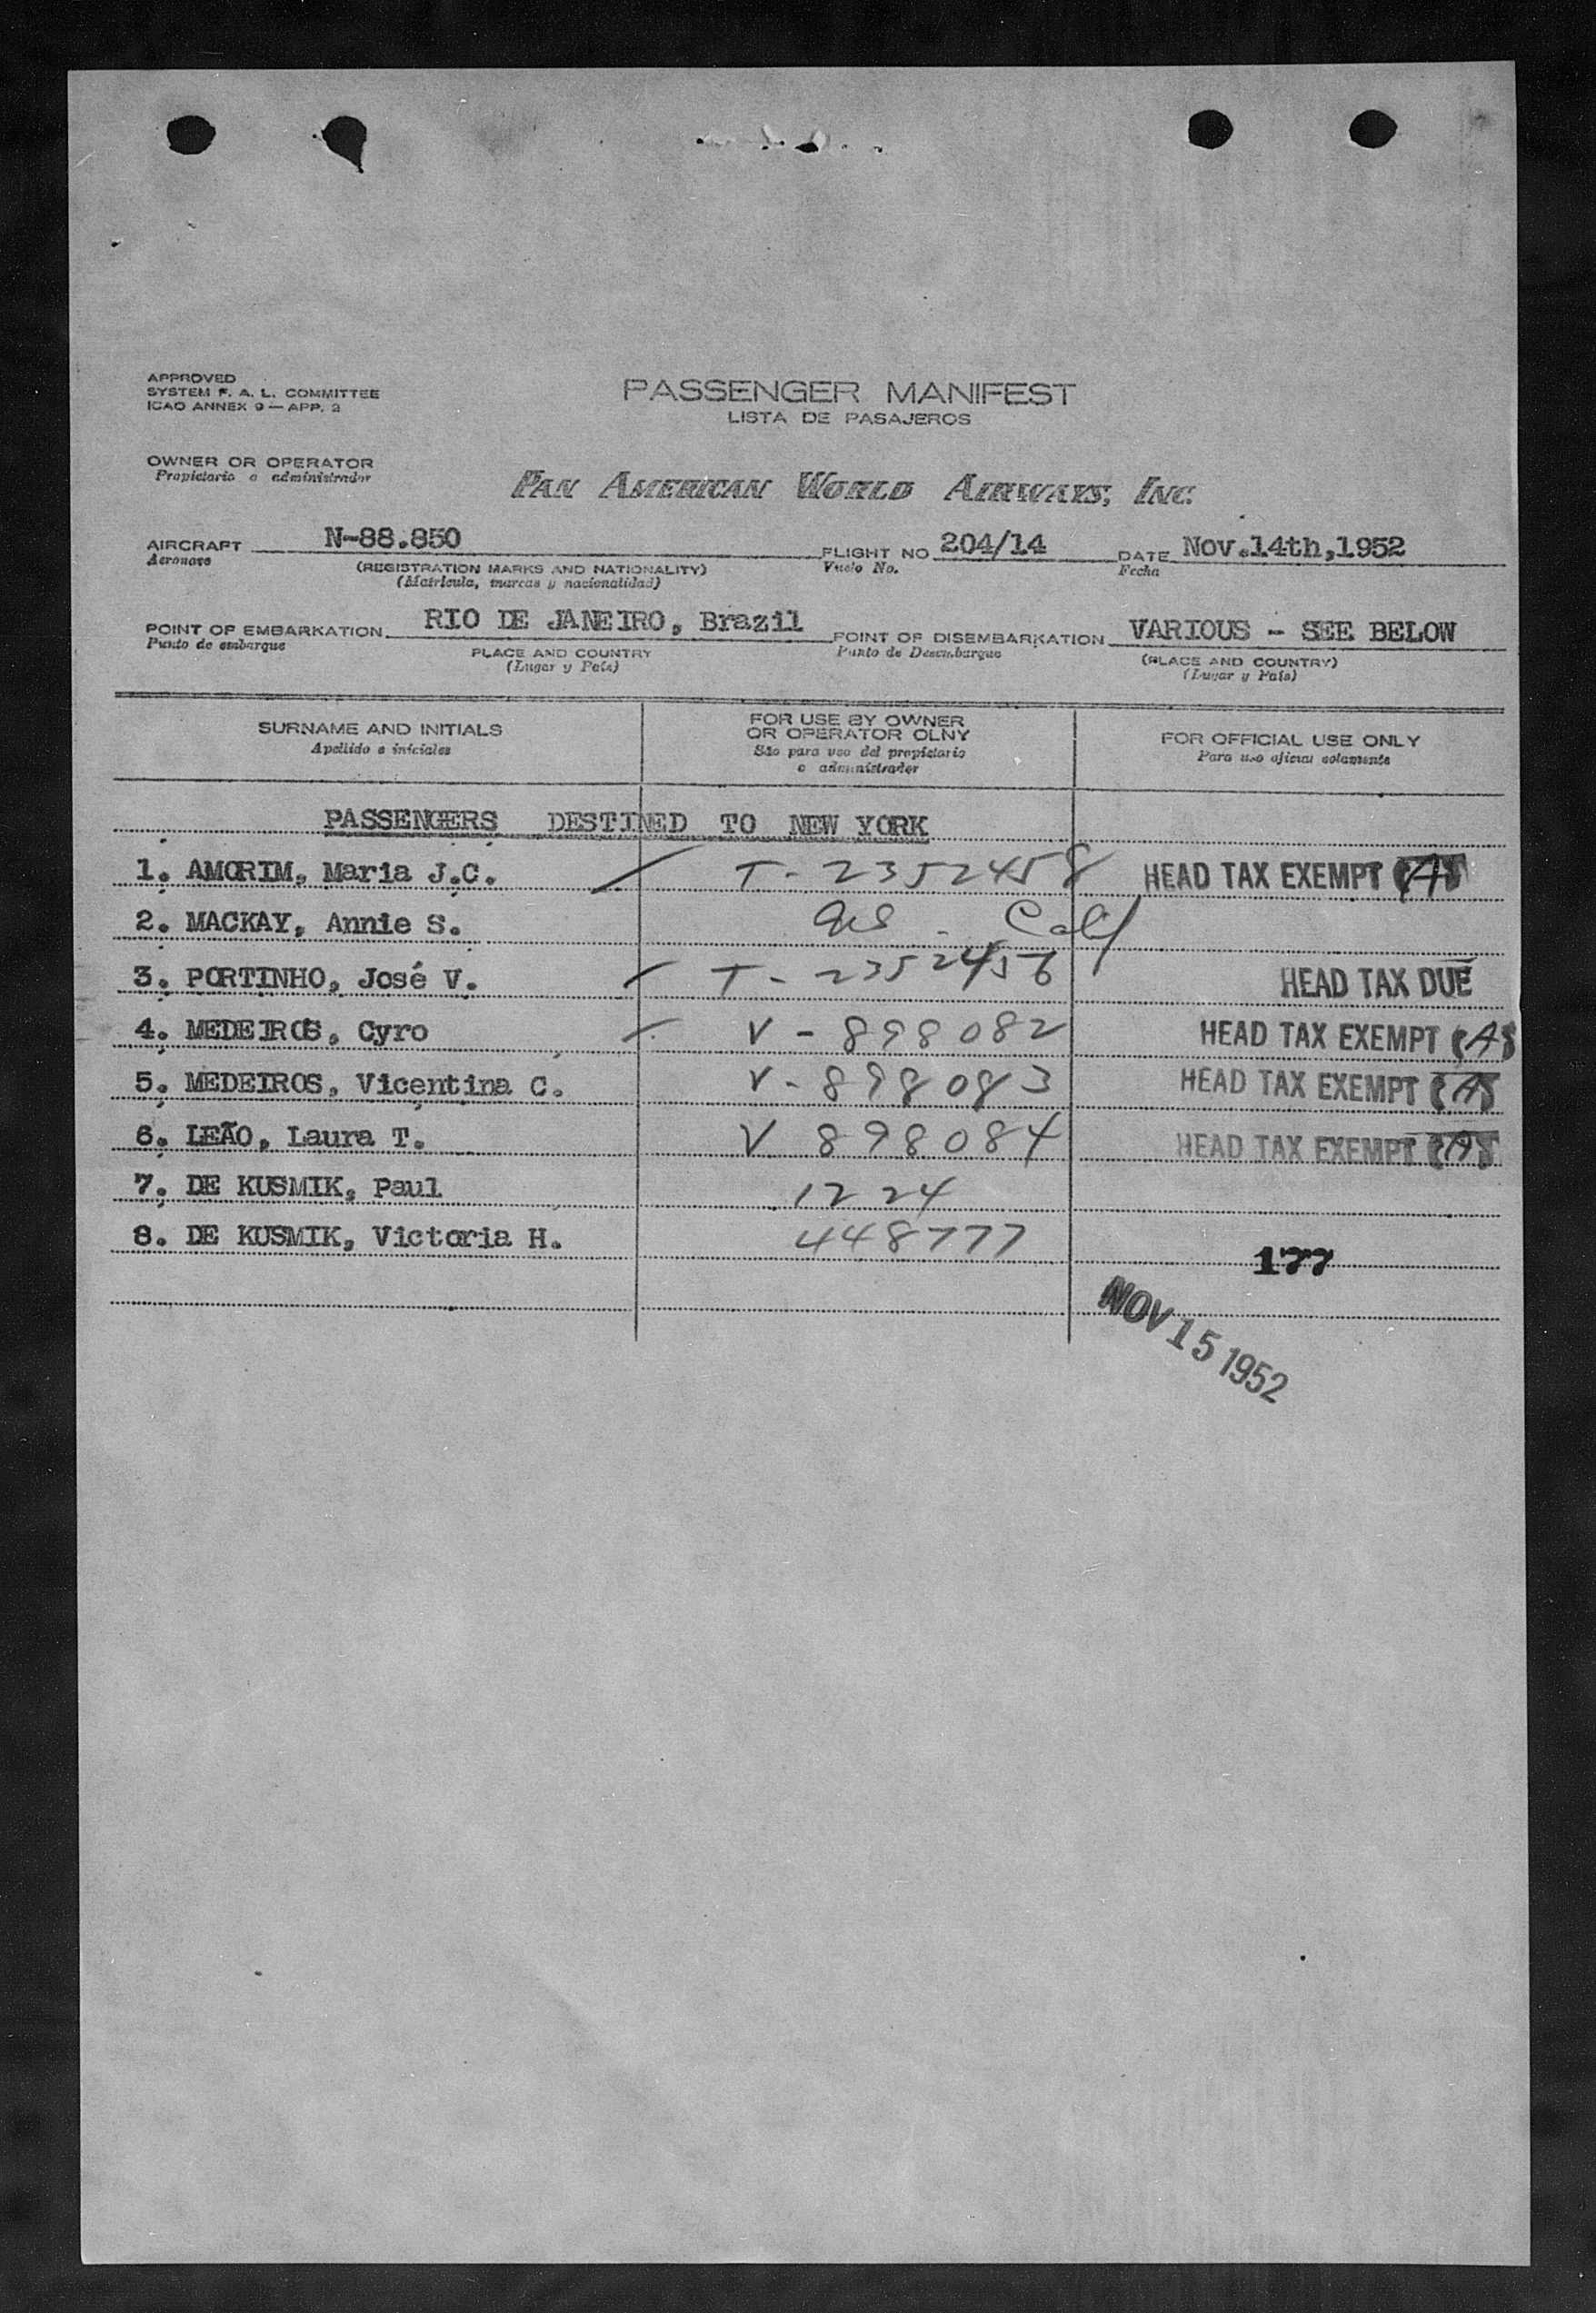 APPROVED
SYSTEM F. A. L. COMMITTEE
ICAO ANNEX 9 — APP. 2
PASSENGER MANIFEST
LISTA DE PASAJEROS
OWNER OR OPERATOR
Propietario o administrador
PAN AMERICAN WORLD AIRWAYS, INC.
AIRCRAFT N-88.850 FLIGHT NO 204/14 DATE Nov.14th,1952
Aeronave (REGISTRATION MARKS AND NATIONALITY) Vuelo No. Fecha
(Matricula, marcas y nacionalidad)
POINT OF EMBARKATION RIO DE JANEIRO, Brazil POINT OF DISEMBARKATION VARIOUS - SEE BELOW
Punto de embarque PLACE AND COUNTRY Punto de Desembarque (PLACE AND COUNTRY)
(Lugar y País) (Lugar y País)
SURNAME AND INITIALS
Apellido e iniciales
FOR USE BY OWNER
OR OPERATOR OLNY
São para uso del propietario
o administrador
FOR OFFICIAL USE ONLY
Para uso oficial solamente
PASSENGERS DESTINED TO NEW YORK
1. AMORIM, Maria J.C. T - 2352458 HEAD TAX EXEMPT
2. MACKAY, Annie S. Calif
3. PORTINHO, José V. T - 2352456 HEAD TAX DUE
4. MEDEIROS, Cyro V - 898082 HEAD TAX EXEMPT
5. MEDEIROS, Vicentina C. V - 898083 HEAD TAX EXEMPT
6. LEÃO, Laura T. V 898084 HEAD TAX EXEMPT
7. DE KUSMIK, Paul 1224
8. DE KUSMIK, Victoria H. 448777
177
NOV 15 1952